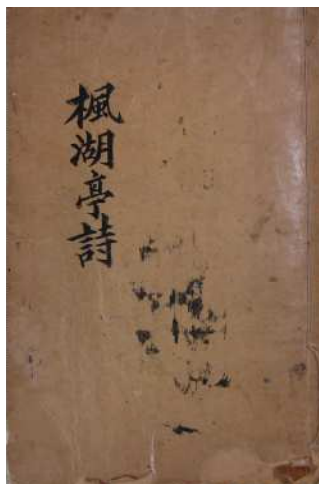 楓湖亭詩